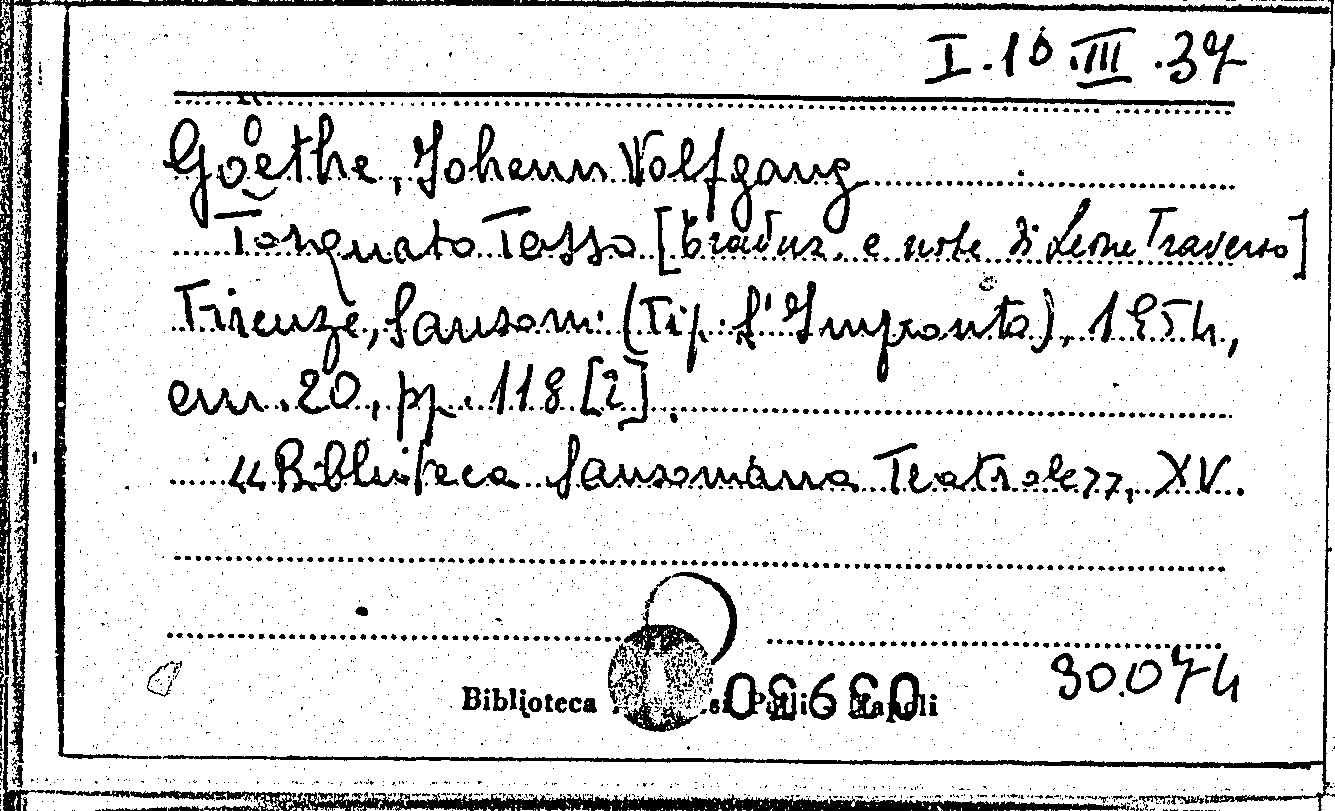 I.10.III.37
Goethe, Johann Wolfgang
Torquato Tasso [traduz. e note di Leone Traverso]
Firenze, Sansoni (Tip. L'Impronta), 1954,
cm. 20, pp. 118 [2].
"Biblioteca Sansoniana Teatrale", XV.
Biblioteca Napoli
30.074